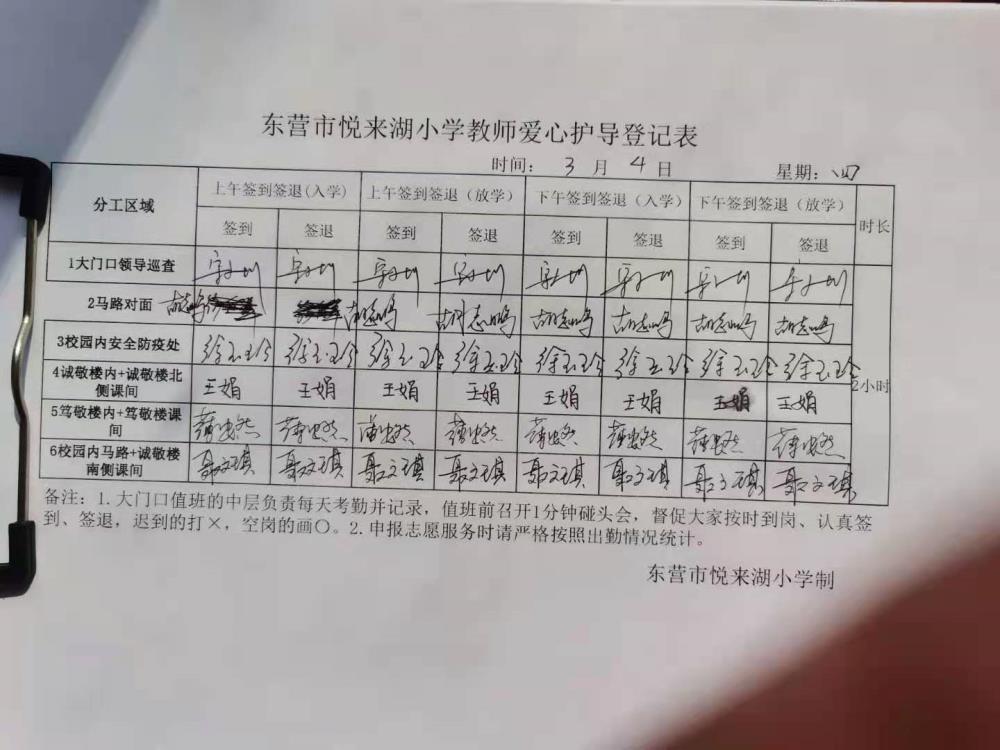 东营市悦来湖小学教师爱心护导登记表
时间： 3 月 4 日 星期：四
分工区域 上午签到签退(入学) 上午签到签退（放学） 下午签到签退（入学） 下午签到签退（放学） 时长
签到 签退 签到 签退 签到 签退 签到 签退
1大门口领导巡查
2马路对面 胡志鸣 胡志鸣 胡志鸣 胡志鸣 胡志鸣 胡志鸣
3校园内安全防疫处 徐玉玲 徐玉玲 徐玉玲 徐玉玲 徐玉玲 徐玉玲 徐玉玲 徐玉玲
4诚敬楼内+诚敬楼北侧课间 王娟 王娟 王娟 王娟 王娟 王娟 王娟 王娟 2小时
5笃敬楼内+笃敬楼课间
6校园内马路+诚敬楼南侧课间 聂文琪 聂文琪 聂文琪 聂文琪 聂文琪 聂文琪 聂文琪 聂文琪
备注：1.大门口值班的中层负责每天考勤并记录，值班前召开1分钟碰头会，督促大家按时到岗、认真签
到、签退，迟到的打×，空岗的画〇。2.申报志愿服务时请严格按照出勤情况统计。
东营市悦来湖小学制